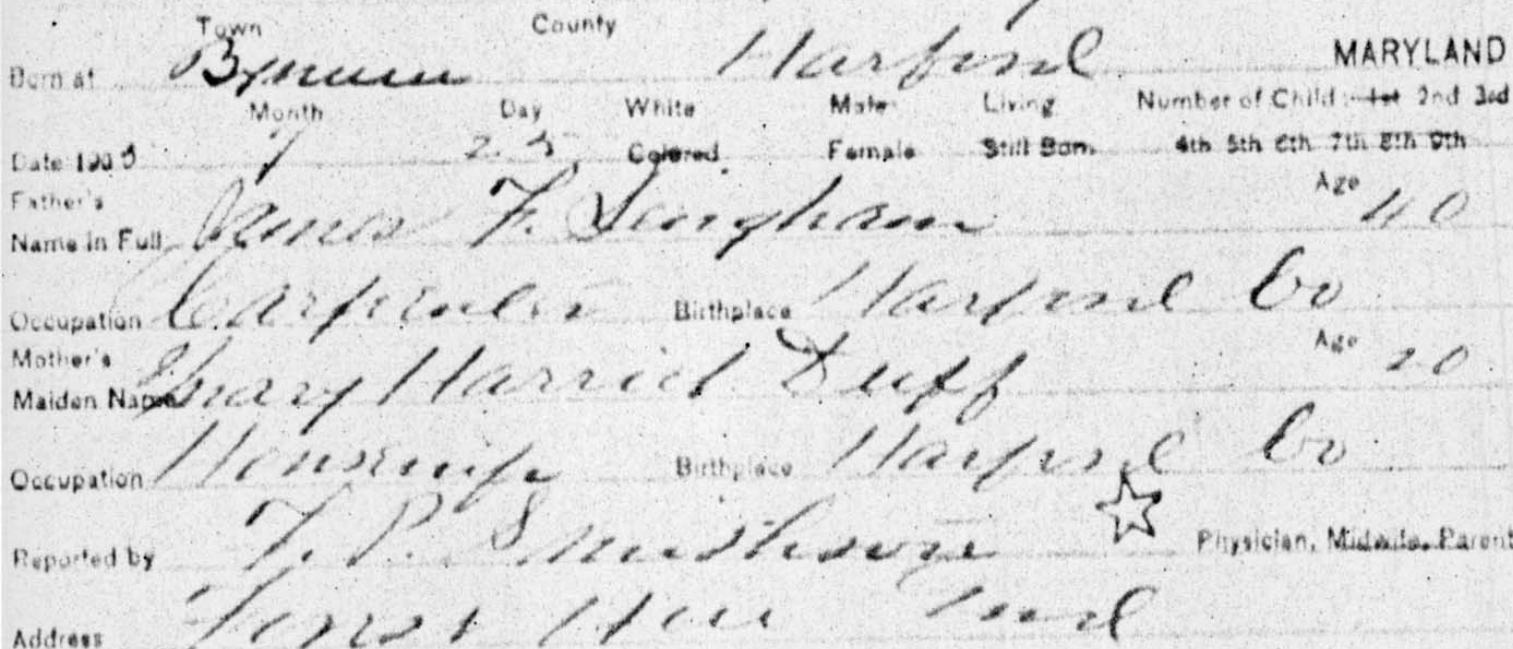 Town County
Born at Bynum Harford MARYLAND
Month Day White Male Living Number of Child: 1st 2nd 3rd
Date 190 7 25 Colored Female Still Born 4th 5th 6th 7th 8th 9th
Father's Age 40
Name in Full James F.
Occupation Carpenter Birthplace Harford Co
Mother's Age 20
Maiden Name Mary Harriet Duff
Occupation Housewife Birthplace Harford Co
Reported by Physician, Midwife, Parent
Address Forest Hill Md